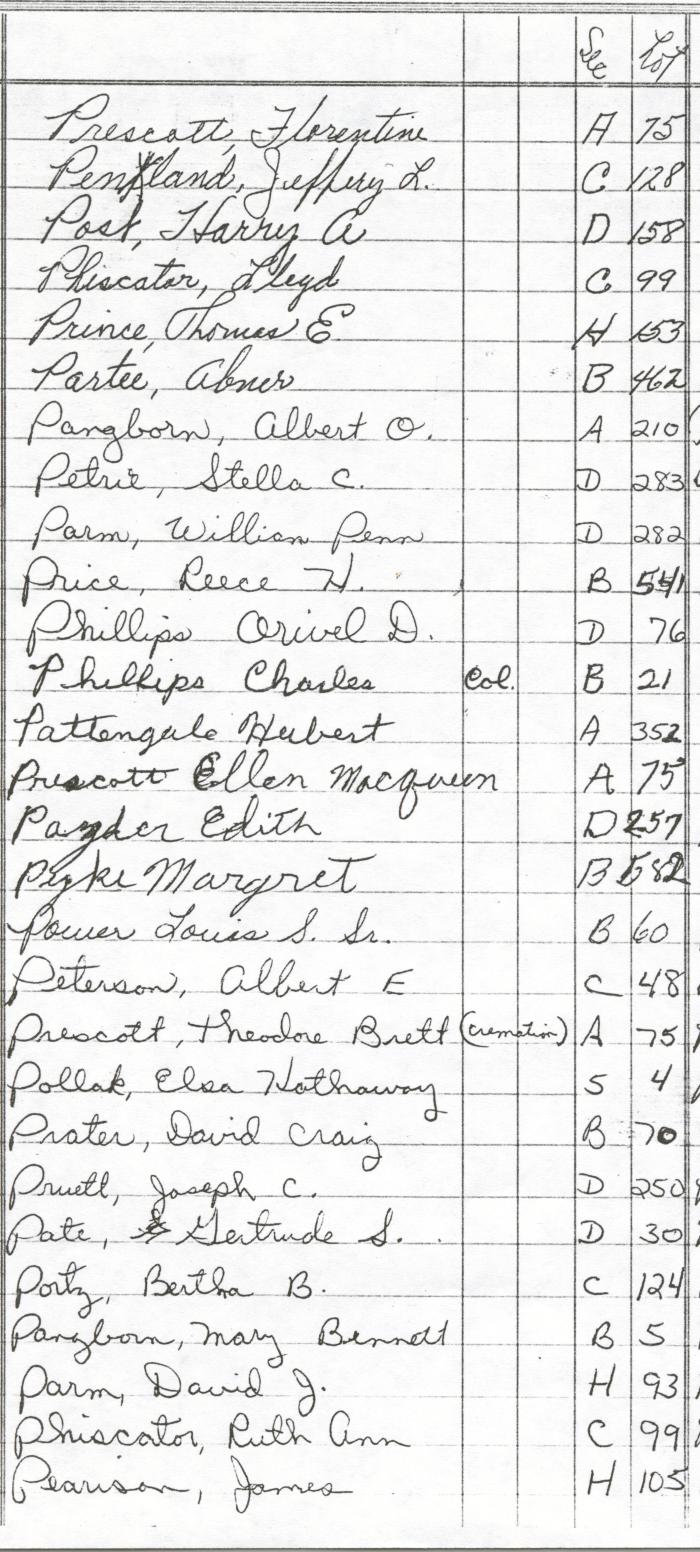 Sec Lot
Prescott, Florentine A 75
Pentland, Jeffery L. C 128
Post, Harry A D 158
Phiscator, Lloyd C 99
Prince, Thomas E H 153
Partee, Abner B 462
Pangborn, Albert O. A 210
Petrie, Stella C. D 283
Parm, William Penn D 282
Price, Reece H. B 541
Phillips Orivel D. D 76
Phillips Charles Col. B 21
Pattengale Hubert A 352
Prescott Ellen Macqueen A 75
Edith D 257
Margret B 582
Power Louis S. Sr. B 60
Peterson, Albert E C 48
Prescott, Theodore Brett (cremation) A 75
Pollak, Elsa Hathaway S 4
Prater, David Craig B 70
Pruett, Joseph C. D 250
Pate, Gertrude S. D 30
Portz, Bertha B. C 124
Pangborn, Mary Bennett B 5
Parm, David J. H 93
Phiscator, Ruth Ann C 99
Pearison, James H 105